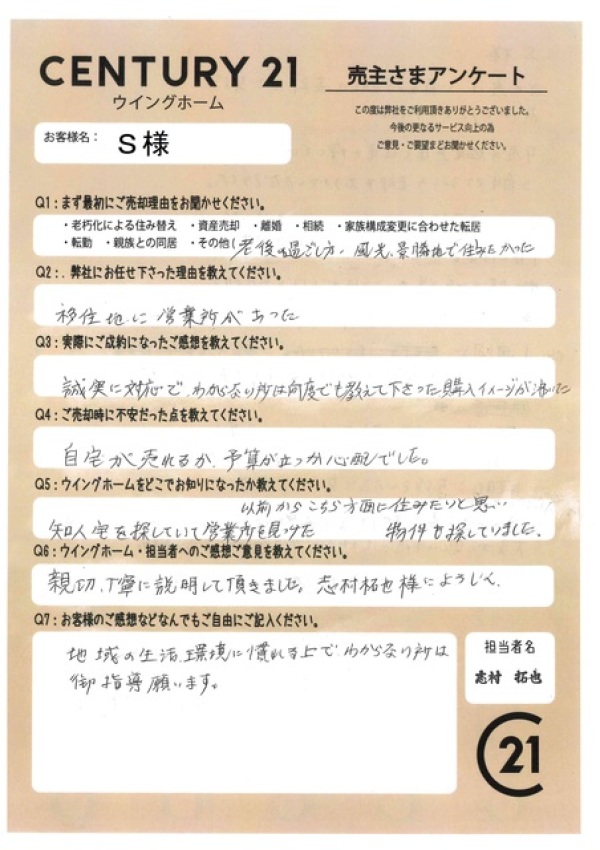 CENTURY 21
ウイングホーム
売主さまアンケート
この度は弊社をご利用頂きありがとうございました。
今後の更なるサービス向上の為
ご意見・ご要望までお聞かせください。
お客様名： S様
Q1：まず最初にご売却理由をお聞かせください。
・老朽化による住み替え ・資産売却 ・離婚 ・相続 ・家族構成変更に合わせた転居
・転勤 ・親族との同居 ・その他（老後の過ごし方、風光、景勝地で住みたかった
Q2：. 弊社にお任せ下さった理由を教えてください。
移住地に営業所があった
Q3：実際にご成約になったご感想を教えてください。
誠実に対応で、わからない所は何度でも教えて下さった購入イメージが
Q4：ご売却時に不安だった点を教えてください。
自宅が売れるか、予算が立つか心配でした。
Q5：ウイングホームをどこでお知りになったか教えてください。
以前からこちら方面に住みたいと思い
知人宅を探していて営業所を見つけた 物件を探していました。
Q6：ウイングホーム・担当者へのご感想ご意見を教えてください。
親切、丁寧に説明して頂きました。志村拓也様によろしく、
Q7：お客様のご感想などなんでもご自由にご記入ください。
地域の生活、環境に慣れる上でわからない所は
御指導願います。
担当者名
志村 拓也
21